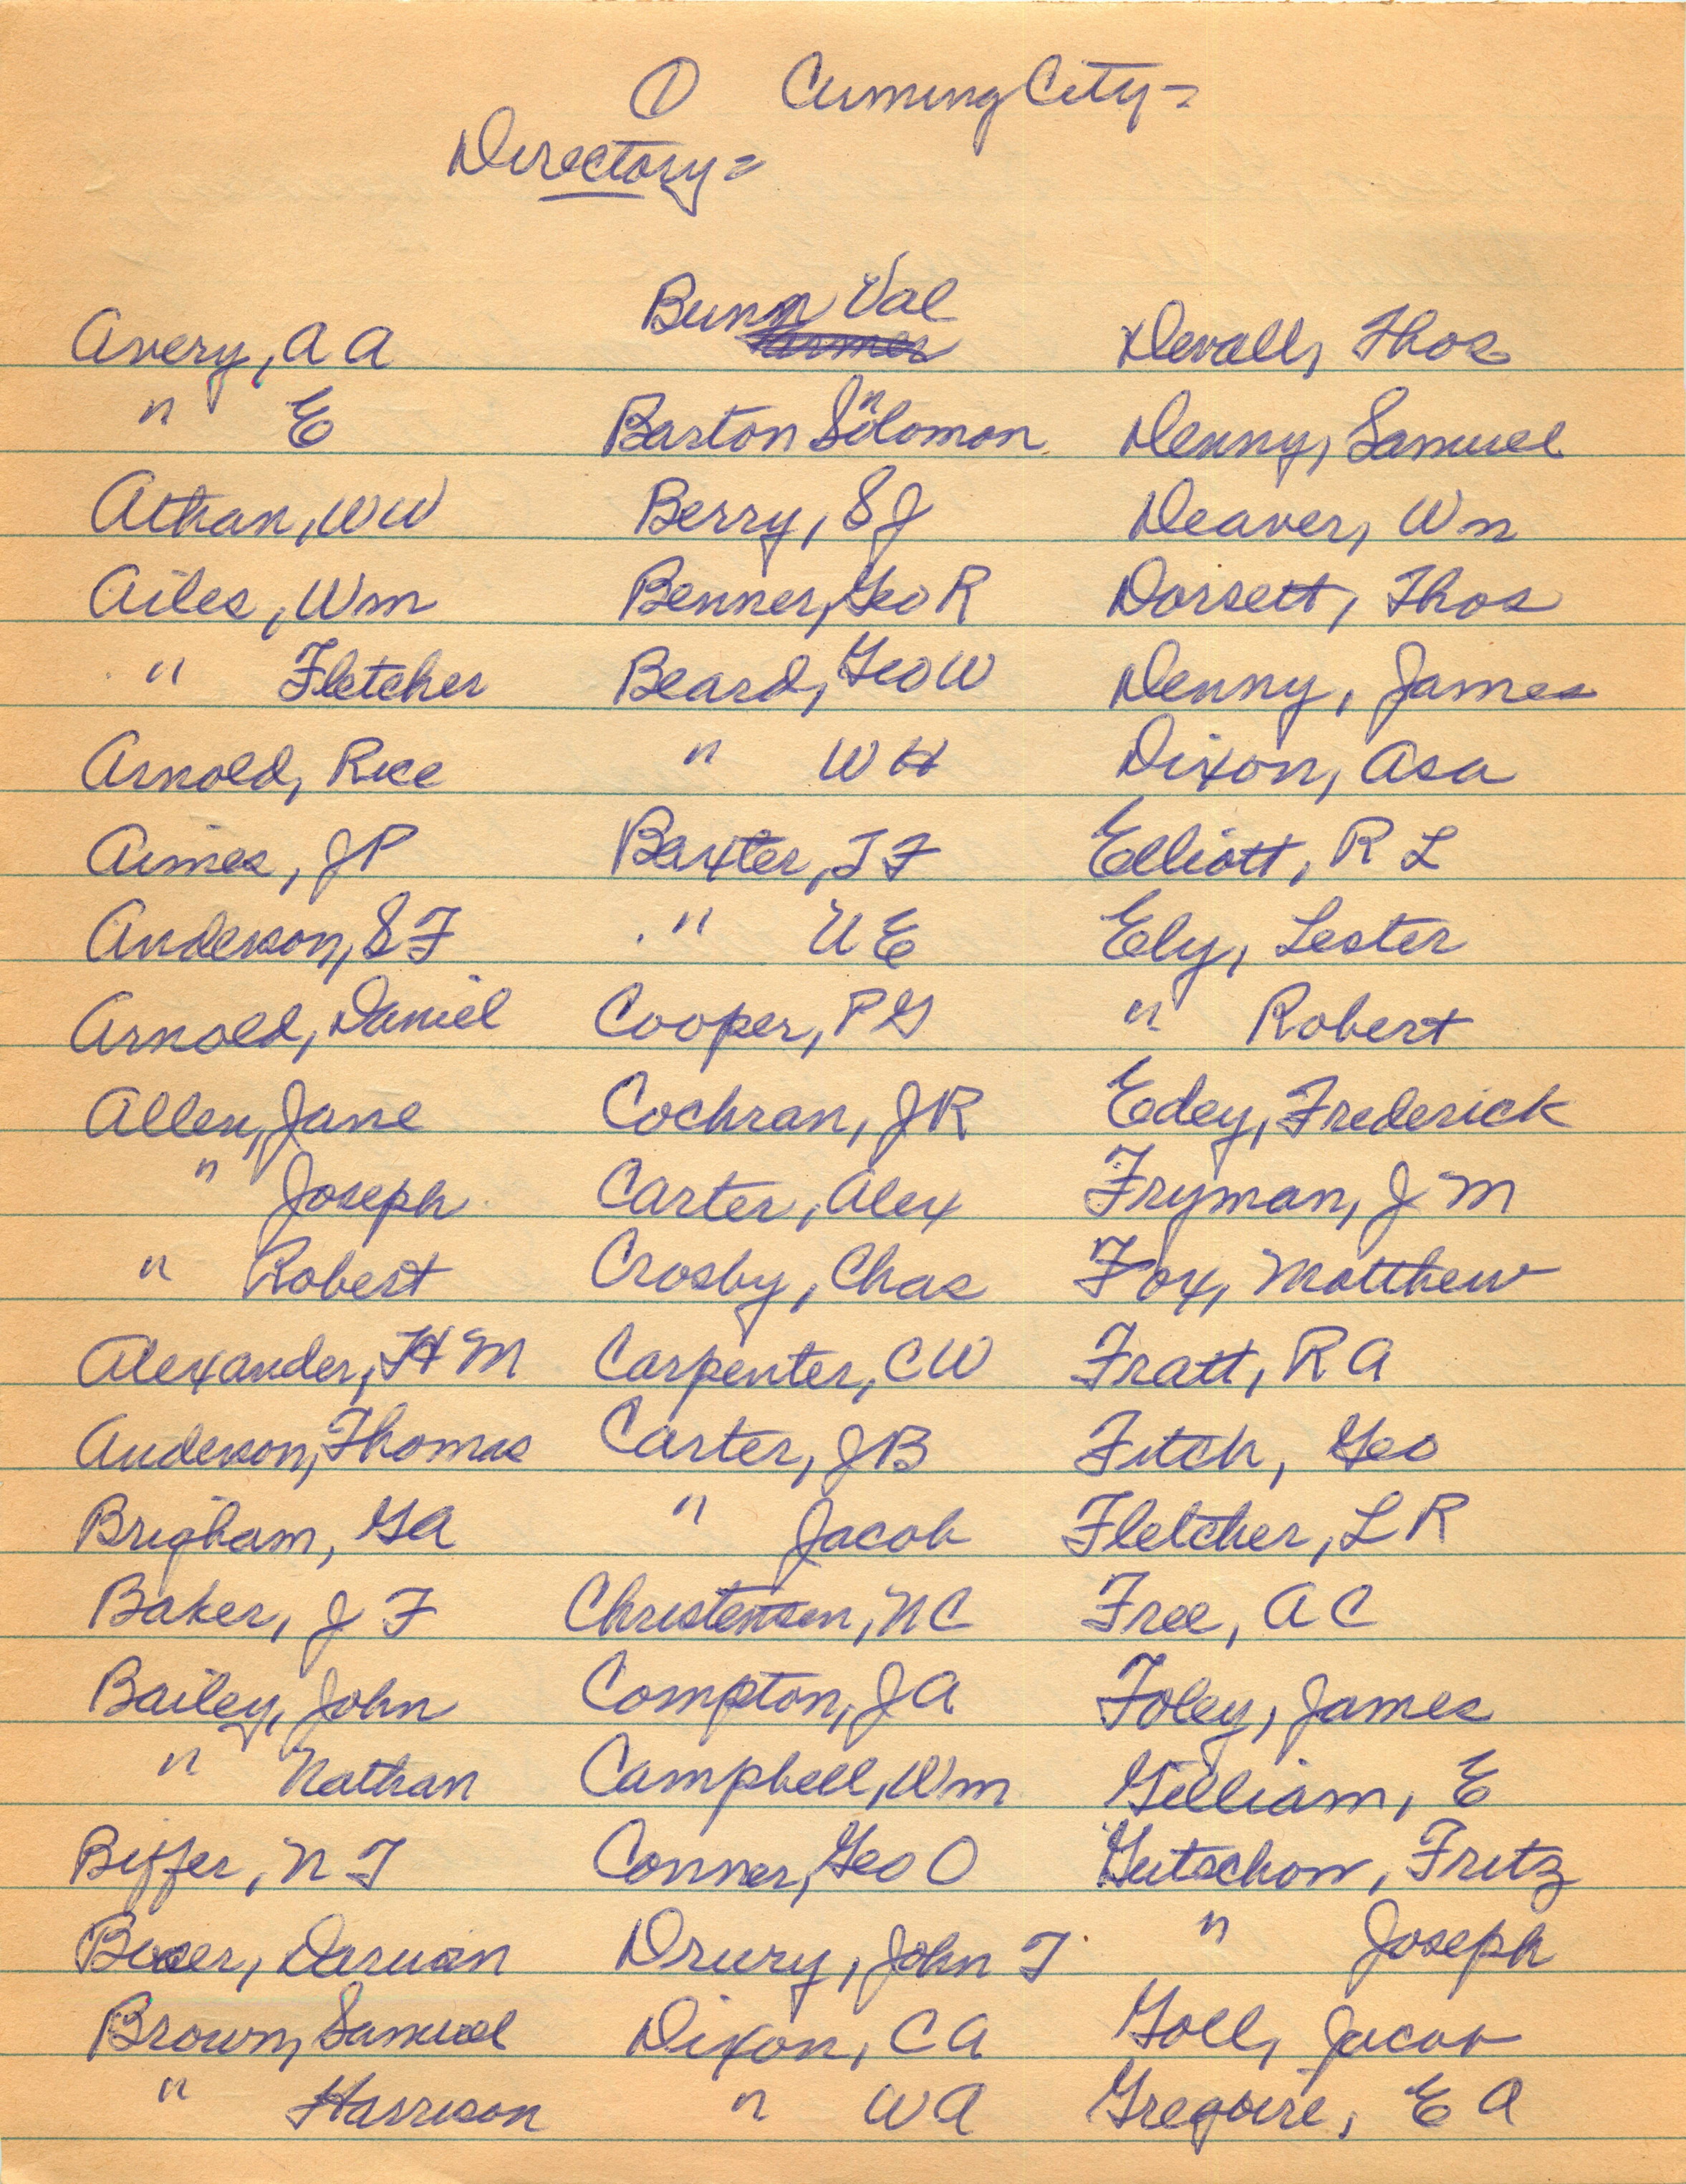 ① Cuming City -
Directory =
Avery, A A
" E
Athan, WW
Ailes, Wm
" Fletcher
Arnold, Rice
Aimes, JP
Anderson, S F
Arnold, Daniel
Allen, Jane
" Joseph
" Robert
Alexander, H M
Anderson, Thomas
Brigham, GA
Baker, J F
Bailey, John
" Nathan
Biffer, N T
Darwin
Brown, Samuel
" Harrison
Bunn Val
Barton Solomon
Berry, S J
Benner, Geo R
Beard, Geo W
" W H
Baxter, T F
" U E
Cooper, P G
Cochran, J R
Carter, Alex
Crosby, Chas
Carpenter, C W
Carter, J B
" Jacob
Christensen, N C
Compton, J A
Campbell, Wm
Conner, Geo O
Drury, John T
Dixon, C A
" W A
Devall, Thos
Denny, Samuel
Deaver, Wm
Dorsett, Thos
Denny, James
Dixon, Asa
Elliott, R L
Ely, Lester
" Robert
Edey, Frederick
Fryman, J M
Fox, Matthew
Fratt, R A
Fitch, Geo
Fletcher, L R
Free, A C
Foley, James
Gilliam, E
Gutschow, Fritz
" Joseph
Goll, Jacob
Gregoire, E A